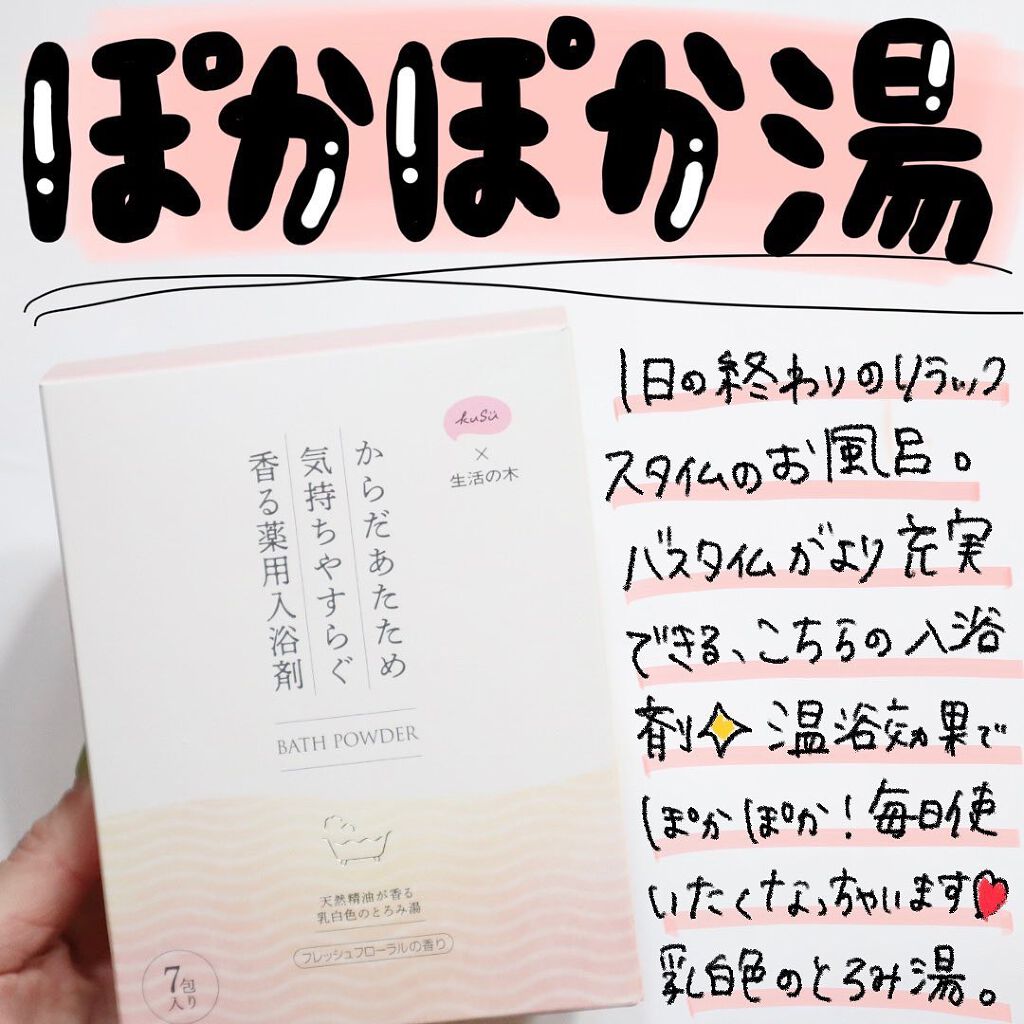 ぽかぽか湯
kusu
×
生活の木
からだあたため
気持ちやすらぐ
香る薬用入浴剤
BATH POWDER
天然精油が香る
乳白色のとろみ湯
フレッシュフローラルの香り
7包
入り
1日の終わりのリラック
スタイムのお風呂。
バスタイムがより充実
できる、こちらの入浴
剤✨温浴効果で
ぽかぽか!毎日使
いたくなっちゃいます♥
乳白色のとろみ湯。